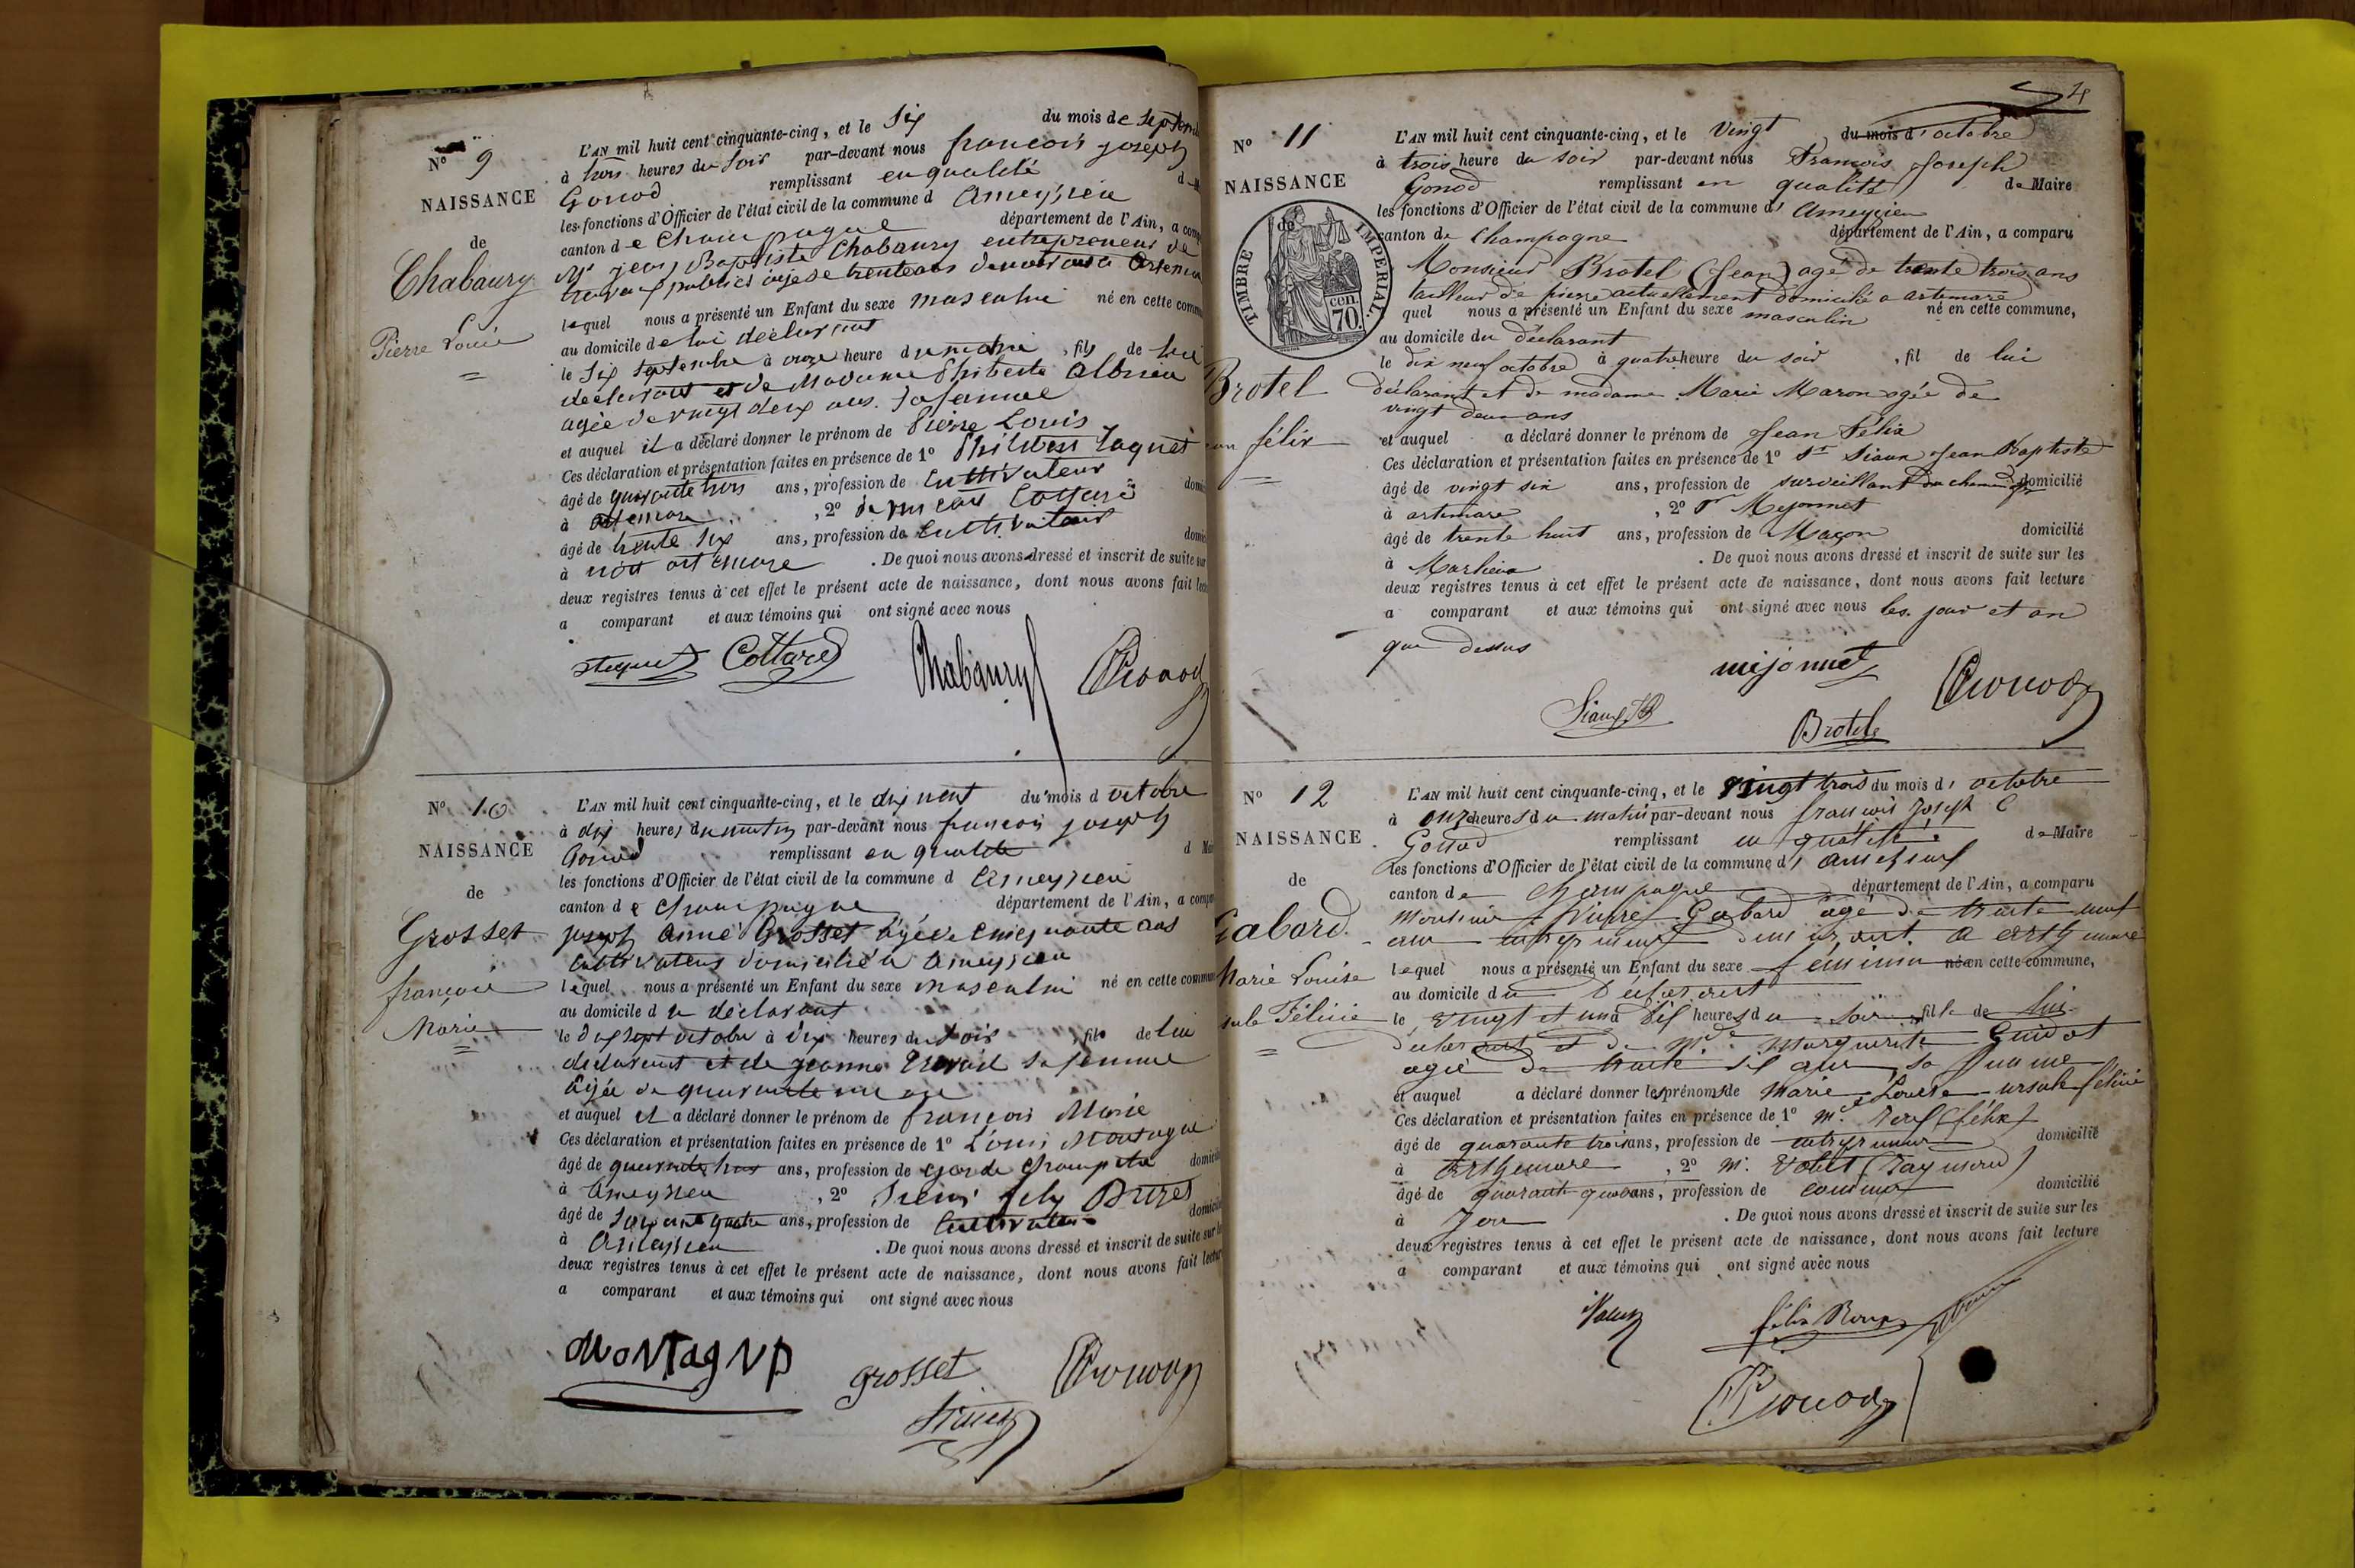 N° 9
NAISSANCE
de
Chabaury
Pierre Louis
L'AN mil huit cent cinquante-cinq, et le six du mois de septem
à trois heures du soir par-devant nous francois joseph
Gonod remplissant en qualité d
les fonctions d'Officier de l'état civil de la commune d Ameyzieu
canton de Champagne département de l'Ain, a comp
Mr jean Baptiste Chabaury entrepreneur de
travaux publics âgé de trente ans demeurant a Artema
lequel nous a présenté un Enfant du sexe masculin né en cette commu
au domicile de lui déclarant
le six septembre à onze heure du matin, fils de lui
déclarant et de Madame Philiberte Albrieu
agée de vingt deux ans. sa femme
et auquel il a déclaré donner le prénom de Pierre Louis
Ces déclaration et présentation faites en présence de 1°
âgé de quarante trois ans, profession de Cultivateur domi
à artemare, 2° Cottare
âgé de trente six ans, profession de Cultivateur domic
à artemare. De quoi nous avons dressé et inscrit de suite sur
deux registres tenus à cet effet le présent acte de naissance, dont nous avons fait lect
a comparant et aux témoins qui ont signé avec nous
Cottare Chabaury Gonod
N° 10
NAISSANCE
de
Grosset
françois
Marie
L'AN mil huit cent cinquante-cinq, et le dix neuf du mois d octobre
à dix heures du matin par-devant nous francois joseph
Gonod remplissant en qualité d Mai
les fonctions d'Officier de l'état civil de la commune d Ameyzieu
canton de Champagne département de l'Ain, a compa
joseph Anmé Grosset âgé de cinquante ans
Cultivateur domicilié a Ameyzieu
lequel nous a présenté un Enfant du sexe masculin né en cette commun
au domicile du déclarant
le dix sept octobre à dix heures du soir, fils de lui
déclarant et de jeanne sa femme
âgée de quarante un an
et auquel il a déclaré donner le prénom de françois Marie
Ces déclaration et présentation faites en présence de 1° Louis Montagne
âgé de quarante trois ans, profession de garde champetre domici
à Ameyzieu, 2°
âgé de soixante quatre ans, profession de Cultivateur domici
à Ameyzieu. De quoi nous avons dressé et inscrit de suite sur le
deux registres tenus à cet effet le présent acte de naissance, dont nous avons fait lectu
a comparant et aux témoins qui ont signé avec nous
Montagne grosset Gonod
4
N° 11
NAISSANCE
de
TIMBRE IMPERIAL.
70. cen.
Brotel
an félix
L'AN mil huit cent cinquante-cinq, et le vingt du mois d'octobre
à trois heure du soir par-devant nous François Joseph
Gonod remplissant en qualité de Maire
les fonctions d'Officier de l'état civil de la commune d'Ameyzieu
canton de Champagne département de l'Ain, a comparu
Monsieur Brotel (Jean) agé de trente trois ans
tailleur de pierre actuellement domicilié a artemare
quel nous a présenté un Enfant du sexe masculin né en cette commune,
au domicile du déclarant
le dix neuf octobre à quatre heure du soir, fil de lui
déclarant et de madame Marie Maron agée de
vingt deux ans
et auquel a déclaré donner le prénom de Jean Félix
Ces déclaration et présentation faites en présence de 1° Sr Siaux Jean Baptiste
âgé de vingt six ans, profession de surveillant du chemin de fer domicilié
à artemare, 2° Sr Mejonnet
âgé de trente huit ans, profession de Maçon domicilié
à. De quoi nous avons dressé et inscrit de suite sur les
deux registres tenus à cet effet le présent acte de naissance, dont nous avons fait lecture
a comparant et aux témoins qui ont signé avec nous les jour et an
que dessus
mijonnet Gonod
Siaux JB Brotel
N° 12
NAISSANCE
de
Gabard
Marie Louise
sule Félicie
L'AN mil huit cent cinquante-cinq, et le vingt trois du mois d'octobre
à onze heures du matin par-devant nous françois joseph
Gonod remplissant en qualité de Maire
les fonctions d'Officier de l'état civil de la commune d'ameyzieu
canton de Champagne département de l'Ain, a comparu
Monsieur Pierre Gabard agé de trente neuf
ans entrepreneur demeurant a arthemare
lequel nous a présenté un Enfant du sexe féminin né en cette commune,
au domicile du déclarant
le vingt et un à dix heures du soir, fille de lui
déclarant et de Mde Marguerite Guidot
agée de trente six ans, sa femme
et auquel a déclaré donner les prénoms de Marie Louise ursule félicie
Ces déclaration et présentation faites en présence de 1° félix
âgé de quarante trois ans, profession de entrepreneur domicilié
à Arthemare, 2° Mr (Raymond)
âgé de quarante quatre ans, profession de domicilié
à. De quoi nous avons dressé et inscrit de suite sur les
deux registres tenus à cet effet le présent acte de naissance, dont nous avons fait lecture
a comparant et aux témoins qui ont signé avec nous
félix Roux
Gonod